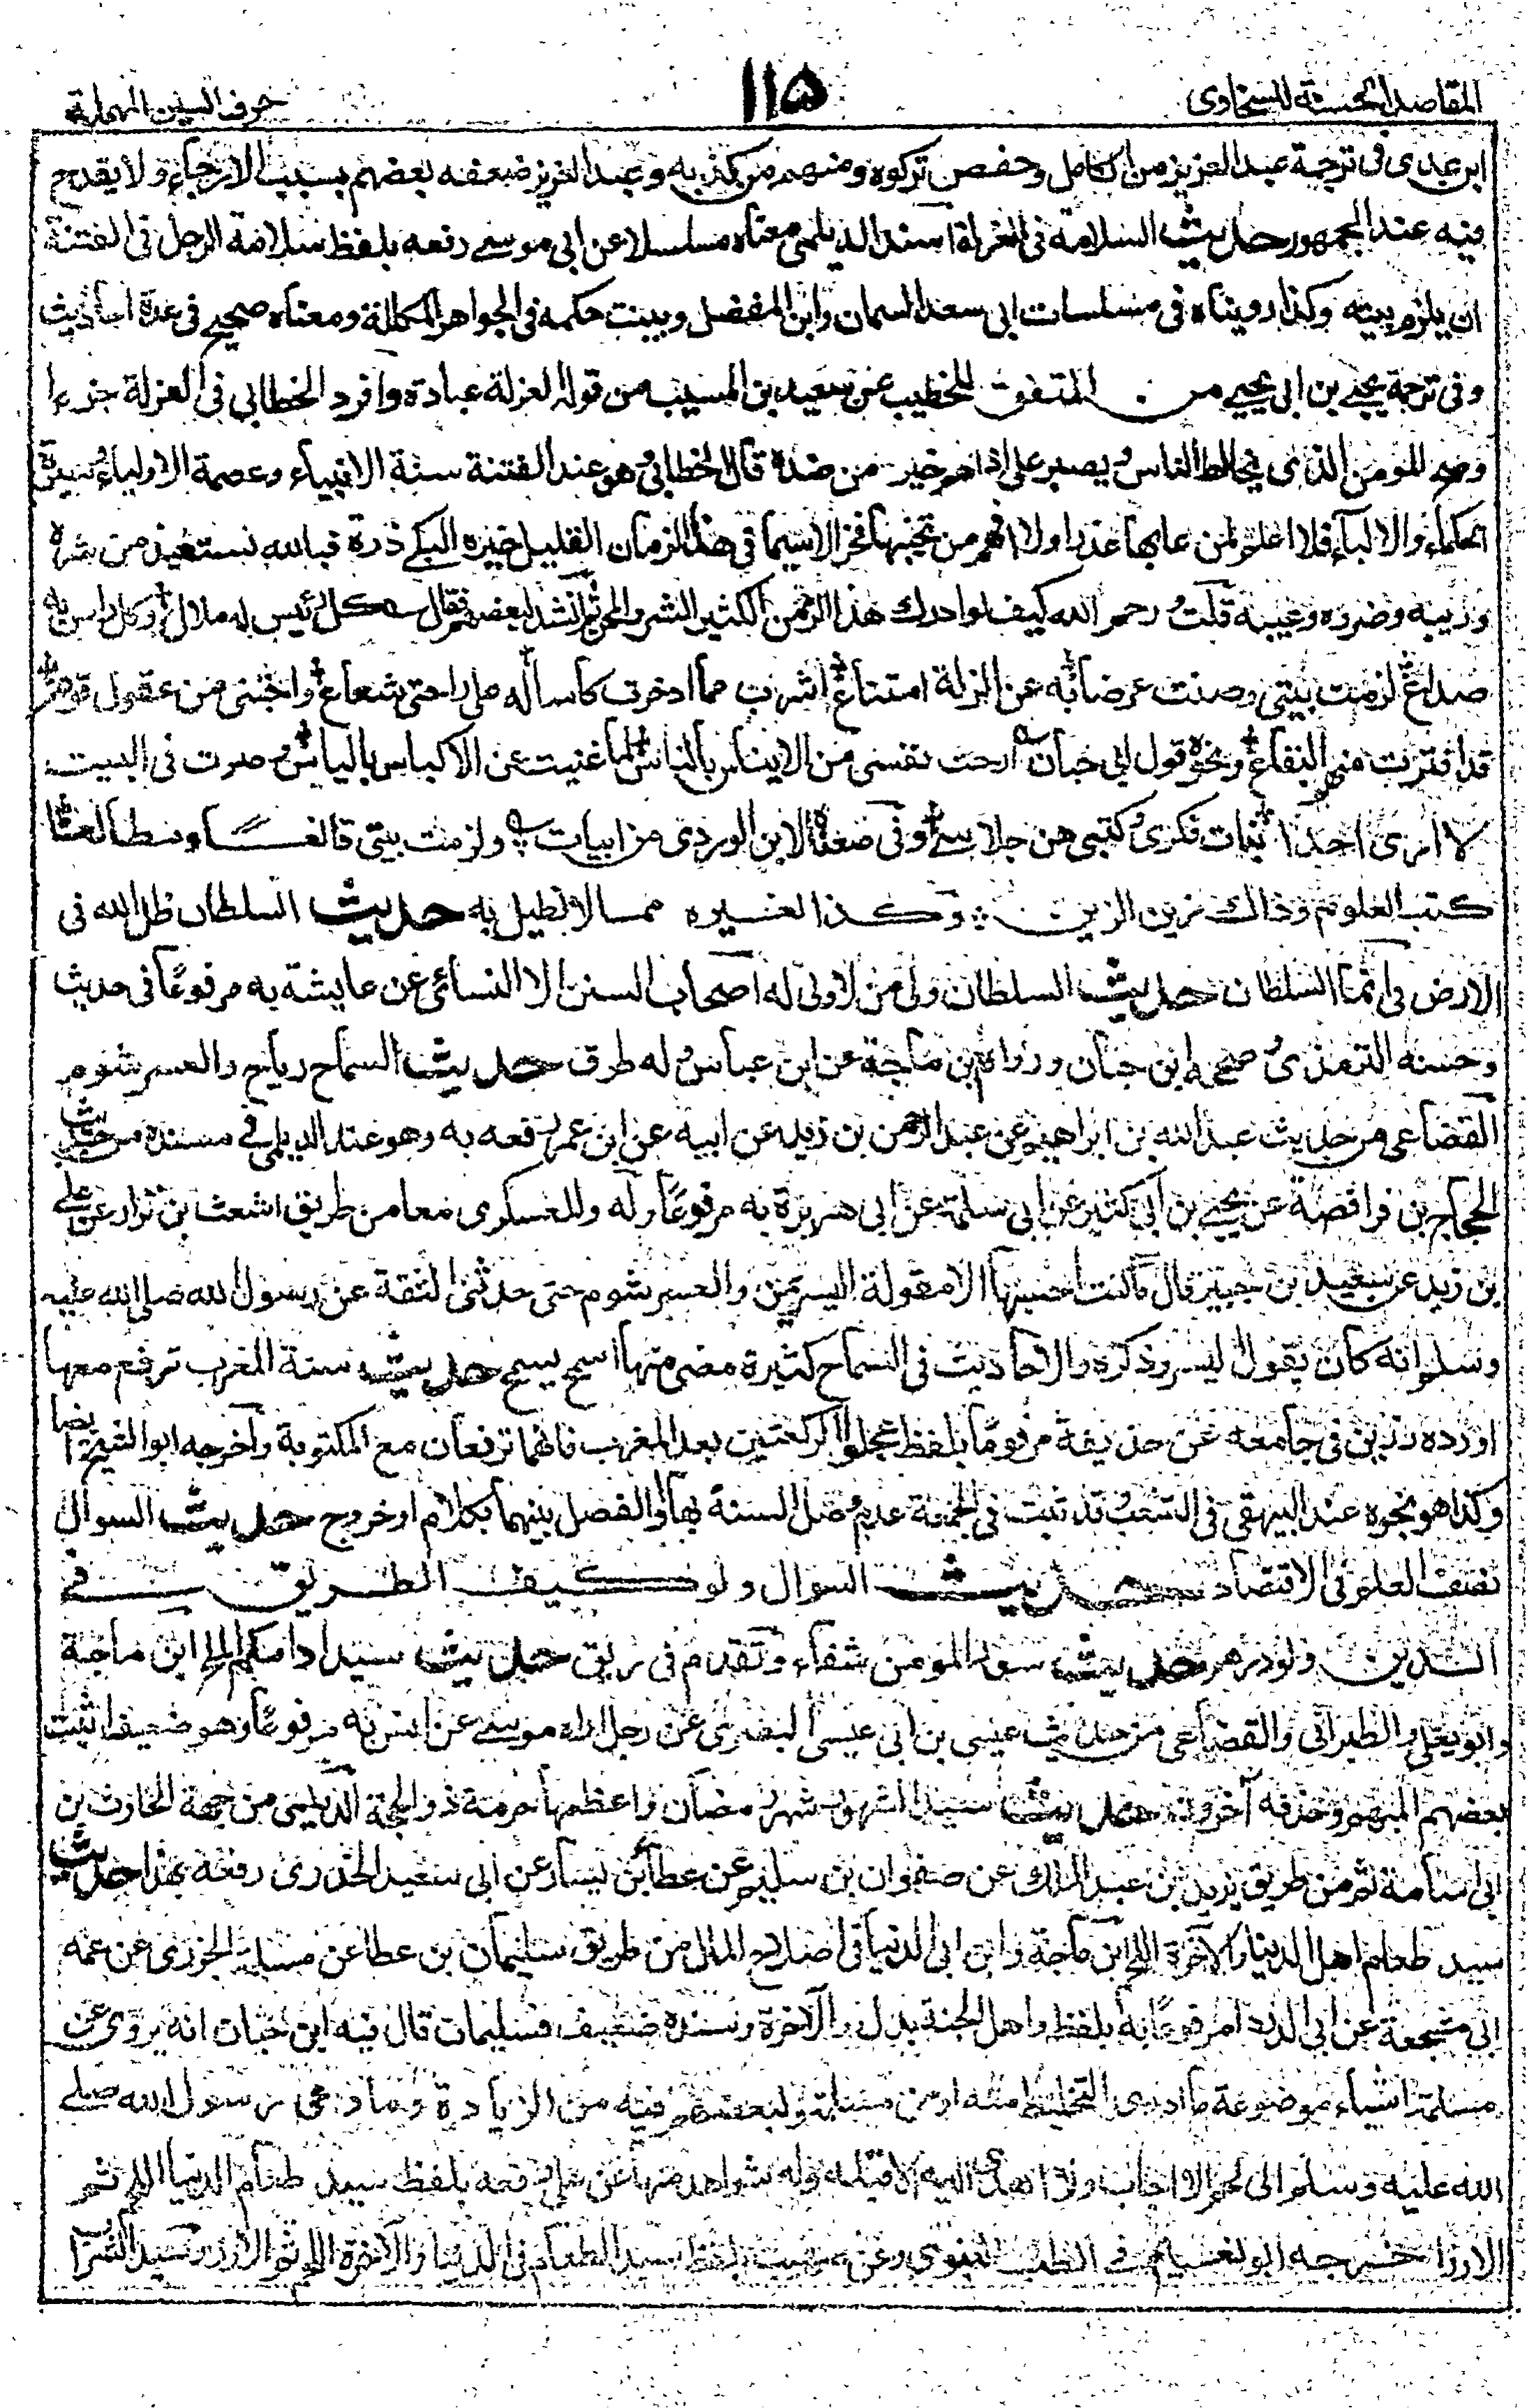 المقاصد الحسنة للسخاوى
١١٥
حرف السين المهملة
ابن عدى فى ترجمة عبد العزيز من الكامل وحفص تركوه ومنهم من كذبه وعبد العزيز ضعفه بعضهم بسبب الارجاء ولا يقدح
فيه عند الجمهور حديث السلامة فى العزلة اسند الديلمى معناه مسلسلا عن ابى موسى رفعه بلفظ سلامة الرجل فى الفتنة
ان يلزم بيته وكذا رويناه فى مسلسلات ابى سعد السمان وابن المفضل وبينت حكمه فى الجواهر المكللة ومعناه صحيح فى عدة احاديث
وفى ترجمة يحيى بن ابى يحيى من المتفق للخطيب عن سعيد بن المسيب من قوله العزلة عبادة وافرد الخطابى فى العزلة جزءا
المومن الذى يخالط الناس ويصبر على اذاهم خير من ضده قال الخطابى هو عند الفتنة سنة الانبياء وعصمة الاولياء وسيرة
الحكماء والالباء فلا اعلم لمن عابها عذرا ولا افهم من تجنبها فخرا لاسيما فى هذا الزمان القليل خيره البكى ذره فبالله نستعيذ من شره
وريبه وضروه وعيبه قلت رحمه الله كيف لو ادرك هذا الزمن الكثير الشر والمحن ثم انشد لبعضهم فقال كل رئيس له ملال وكل راس به
صداع لزمت بيتى وصنت عرضا به عن الزلة امتناع اشرب مما ادخرت كأسا له على راحتى شعاع واجتنى من عقول قوم
قد اقفرت منهم البقاع ونحوه قول ابى حيان ارحت نفسى من الايناس بالناس لما غنيت عن الاكياس بالياس وصرت فى البيت
لا ارى احدا بنات فكرى وكتبى هن جلاسى وفى ضعنه لابن الوردى من ابيات ولزمت بيتى قانعا وسطالعا
كتب العلوم وذاك زين الزين وكذا لغيره مما لا نطيل به حديث السلطان ظل الله فى
الارض فى انما السلطان حديث السلطان ولى من لا ولى له اصحاب السنن الا النسائى عن عايشة به مرفوعا فى حديث
وحسنه الترمذى وصححه ابن حبان ورواه ابن ماجة عن ابن عباس وله طرق حديث السماح رباح والعسر شوم
القضاعى من حديث عبد الله بن ابراهيم عن عبد الرحمن بن زيد عن ابيه عن ابن عمر رفعه به وهو عند الديلمى فى مسنده من حديث
الحجاج بن فرافصة عن يحيى بن ابى كثير عن ابى سلمة عن ابى هريرة به مرفوعا وله وللعسكرى معا من طريق اشعث بن نزار عن على
بن زيد عن سعيد بن جبير قال ما كنت احسبها الا مقولة اليسر يمن والعسر شوم حتى حدثنى الثقة عن رسول الله صلى الله عليه
وسلم انه كان يقول اليسر وذكره والاحاديث فى السماح كثيرة مضى منها اسمح يسمح حديث سنة المغرب ترفع معها
اورده رزين فى جامعه عن حذيفة مرفوعا بلفظ عجلوا الركعتين بعد المغرب فانهما ترفعان مع المكتوبة واخرجه ابو الشيخ ايضا
وكذا هو بنحوه عند البيهقى فى الشعب قد ثبت فى الجمعة عدم وصل السنة بها والفصل بينهما بكلام او خروج حديث السوال
نصف العلم فى الاقتصاد حديث السوال ولو كيف الطريق فى
الدين ولو درهم حديث سور المومن شفاء وتقدم فى ريق حديث سيد ادامكم الملح ابن ماجة
وابو يعلى والطبرانى والقضاعى من حديث عيسى بن ابى عيسى البصرى عن رجل اراه موسى عن انس به مرفوعا وهو ضعيف اثبت
بعضهم المبهم وحذفه آخرون حديث سيد الشهور شهر رمضان واعظمها حرمة ذو الحجة الديلمى من جهة الحارث بن
ابى اسامة ثم من طريق يزيد بن عبد الملك عن صفوان بن سليم عن عطاء بن يسار عن ابى سعيد الخدرى رفعه بهذا حديث
سيد طعام اهل الدنيا والآخرة اللحم ابن ماجة وابن ابى الدنيا فى اصلاح المال من طريق سليمان بن عطا عن مسلمة الجزرى عن عمه
ابى مشجعة عن ابى الدردا مرفوعا به بلفظ واهل الجنة بدل والآخرة وسنده ضعيف فسليمان قال فيه ابن حبان انه يروى عن
مسلمة اشياء موضوعة ما ادرى التخليط منه او من مسلمة ولبعضهم فيه من الزيادة وما دعى رسول الله صلى
الله عليه وسلم الى لحم الا اجاب ولا اهدى اليه الا قبله وله شواهد منها عن على رفعه بلفظ سيد طعام الدنيا اللحم ثم
الارز اخرجه ابو نعيم فى الطب النبوى وعن صهيب بلفظ سيد الطعام فى الدنيا والآخرة اللحم ثم الارز وسيد الشراب